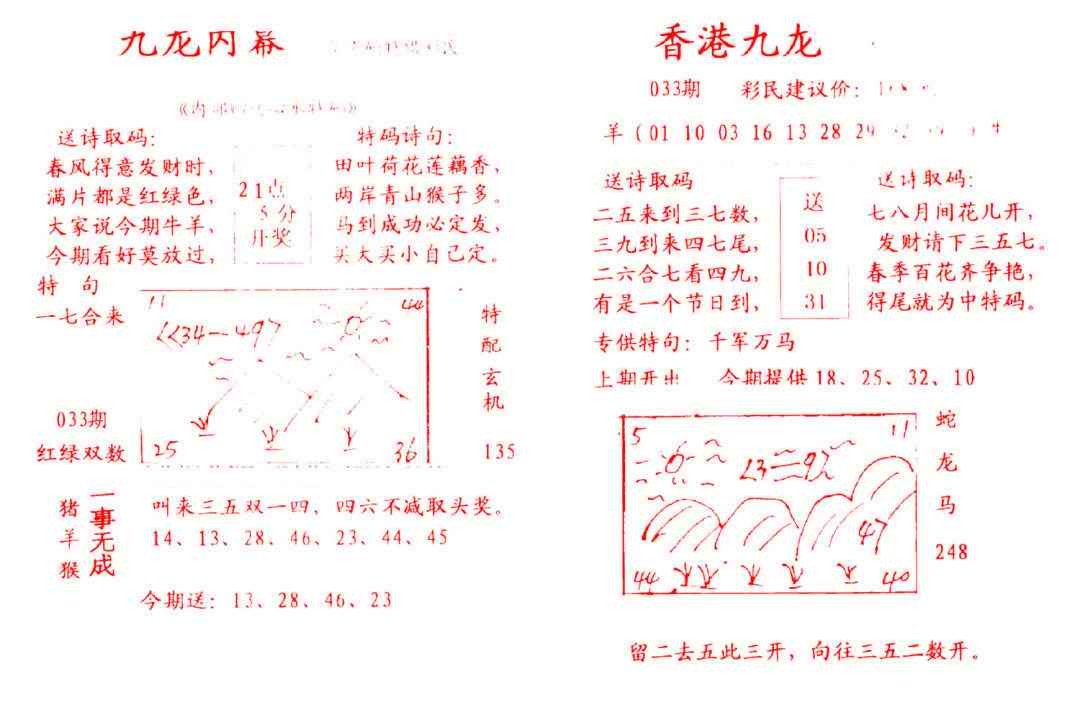 九龙内幕
送诗取码：
春风得意发财时，
满片都是红绿色，
大家说今期牛羊，
今期看好莫放过，
21点
5分
开奖
特码诗句：
田叶荷花莲藕香，
两岸青山猴子多。
马到成功必定发，
买大买小自己定。
特 句
一七合来
033期
红绿双数
11
44
25
36
特
配
玄
机
135
猪
羊
猴
一事无成
叫来三五双一四，四六不减取头奖。
14、13、28、46、23、44、45
今期送：13、28、46、23
香港九龙
033期 彩民建议价：
羊（01 10 03 16 13 28 29
送诗取码
二五来到三七数，
三九到来四七尾，
二六合七看四九，
有是一个节日到，
送
05
10
31
送诗取码：
七八月间花儿开，
发财请下三五七。
春季百花齐争艳，
得尾就为中特码。
专供特句：千军万马
上期开出 今期提供18、25、32、10
5
11
47
44
40
蛇
龙
马
248
留二去五此三开，向往三五二数开。